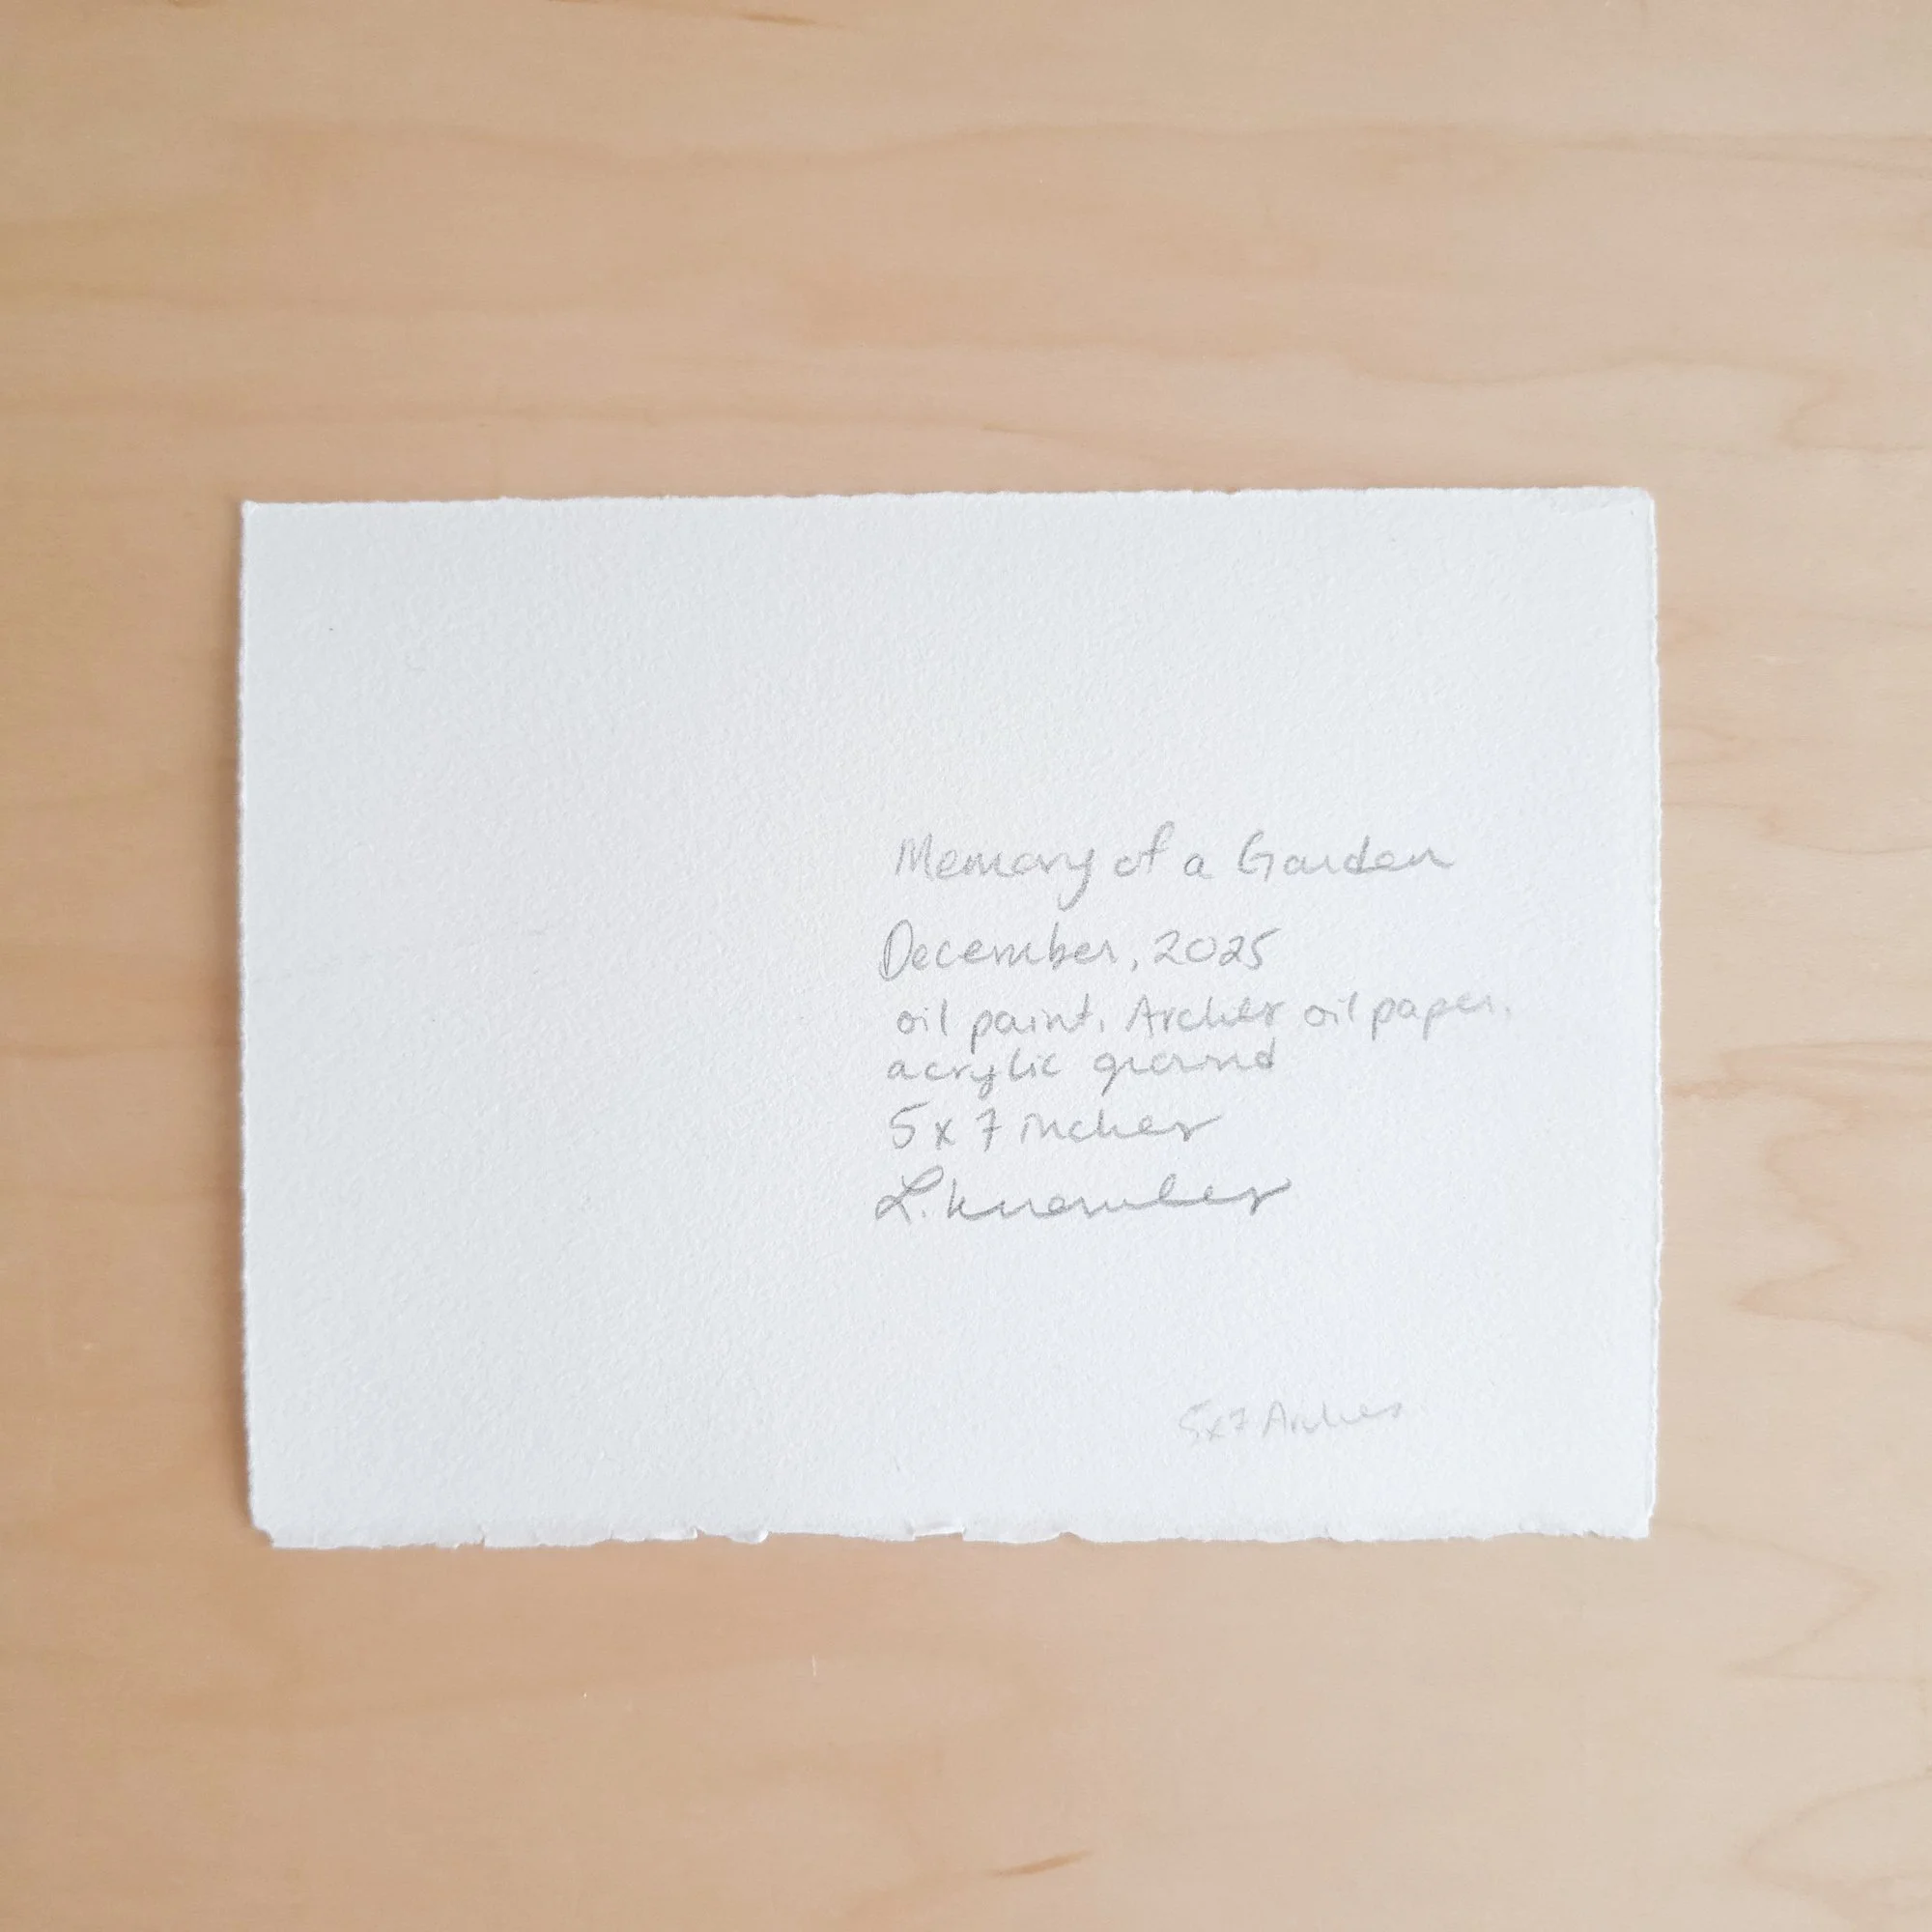 Memory of a Garden
December, 2025
oil paint, Arches oil paper,
acrylic ground
5x7 inches
L.
5x7 Arches